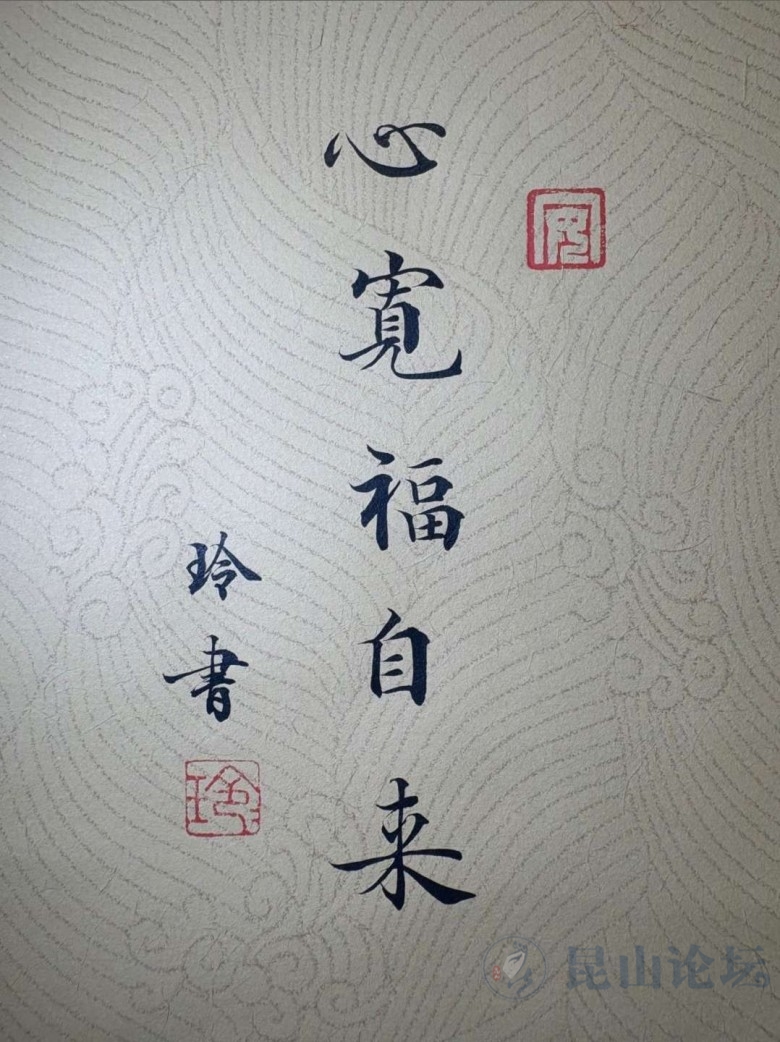 心寬福自来
玲書
玲
昆山论坛